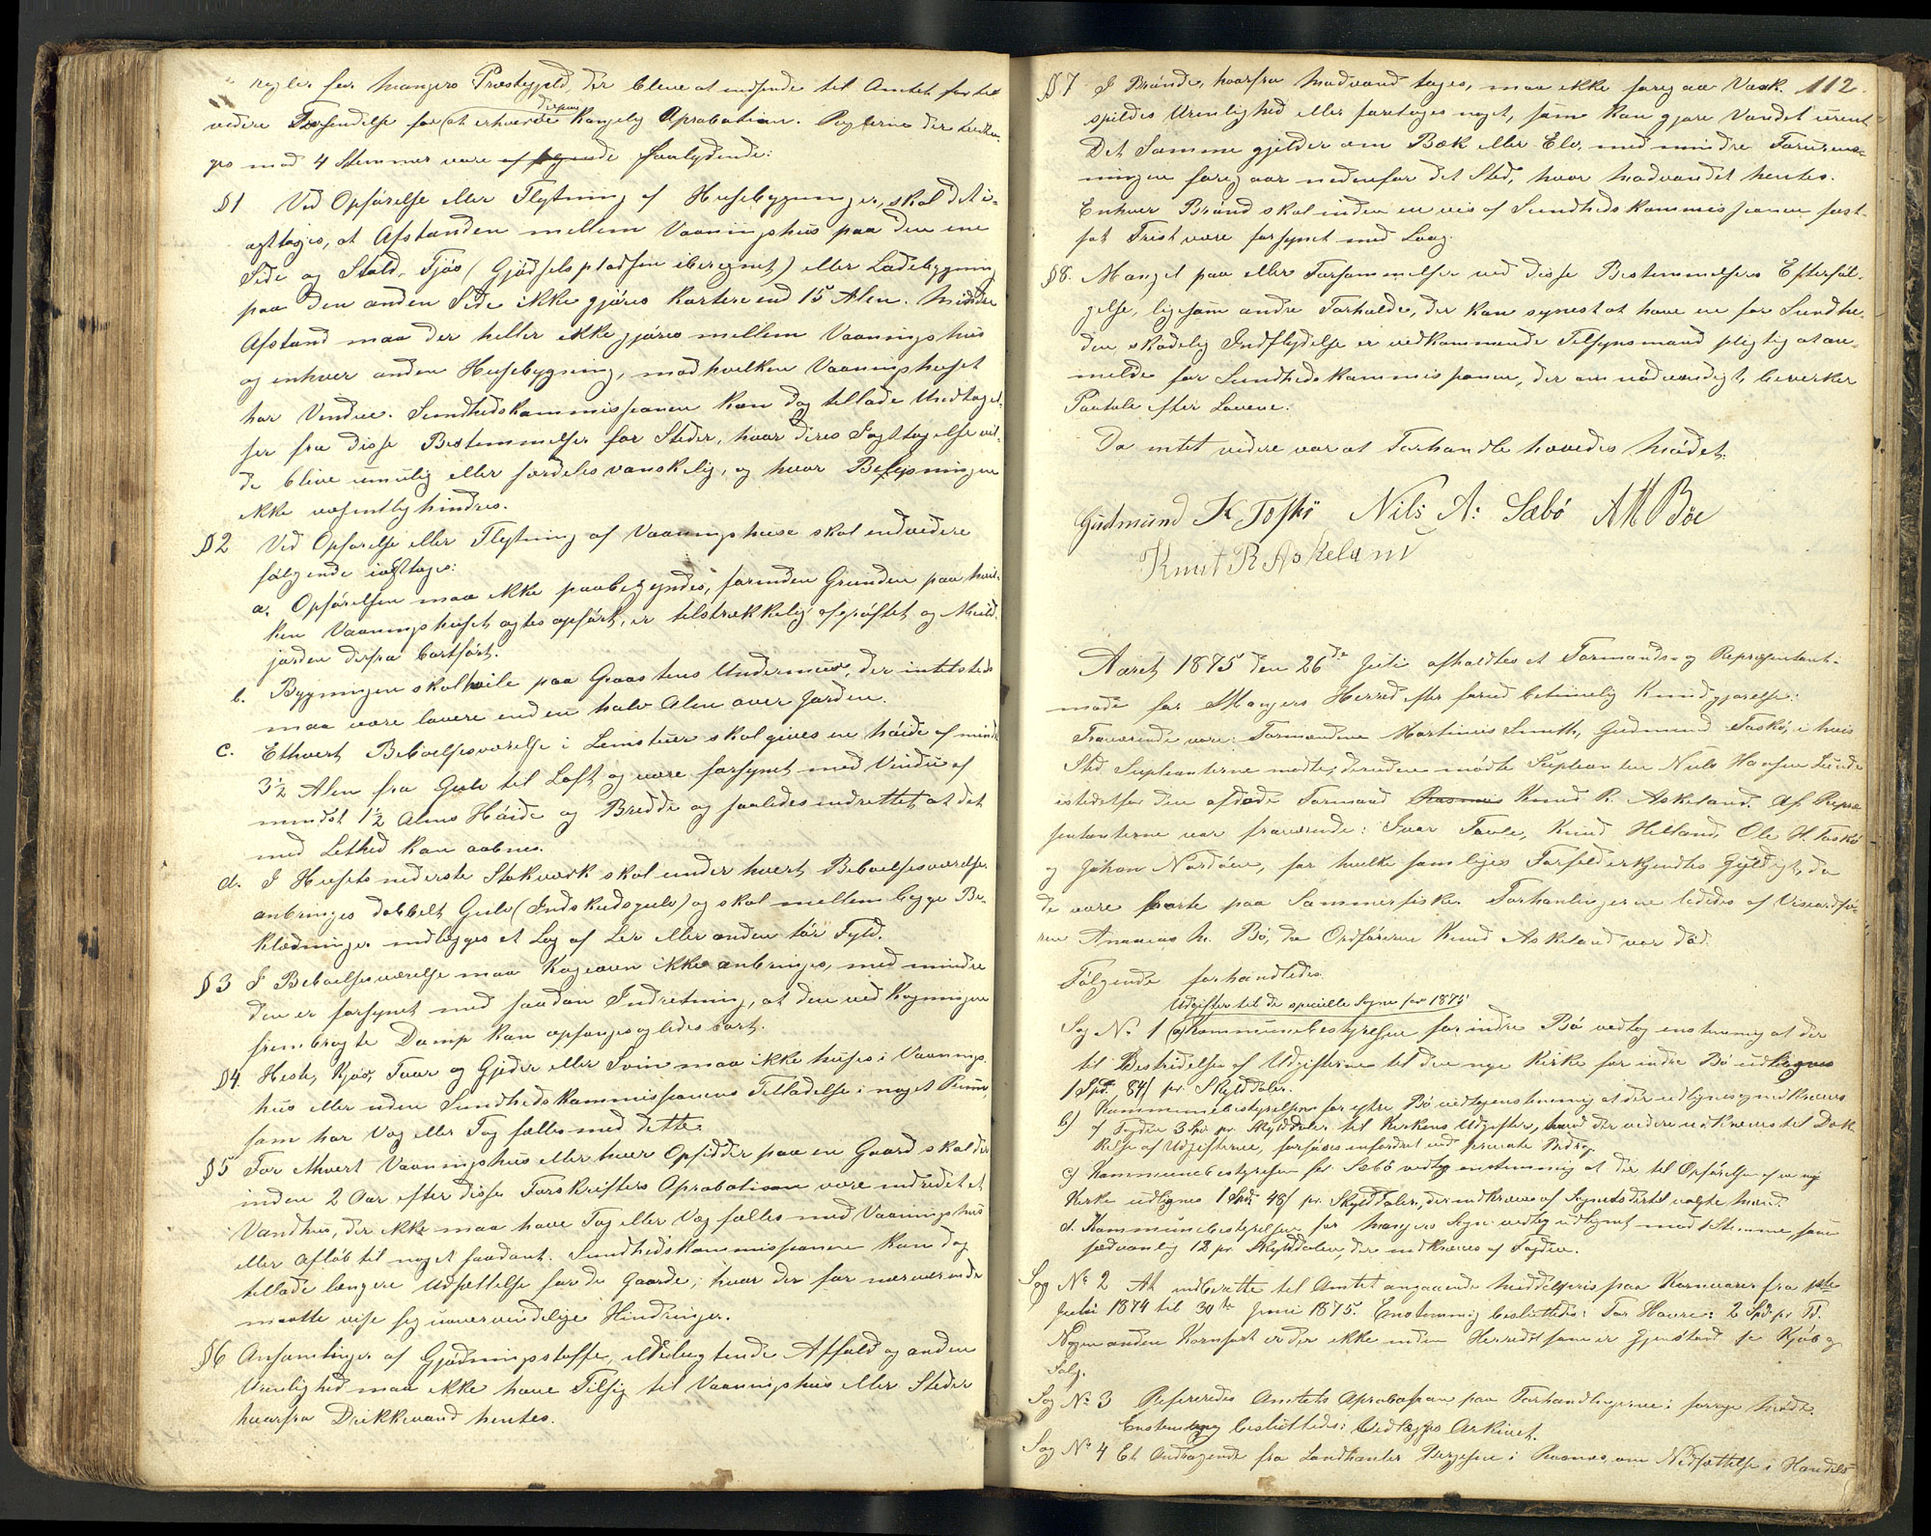 regler for Mangers Præstegjeld, der bleve at indsende til Amtet for
videre Forsendelse for derpaa at erhverve Kongelig Aprobation. Reglerne der vedto-
ges med 4 Stemmer vare saalydende:
§1 Ved Opförelse eller Flytning af Husebygninger, skal det i-
agttages, at Afstanden mellem Vaaningshus paa den ene
Side og Stald, Fjös (Gjödselspladsen iberegnet) eller Ladebygning
paa den anden Side ikke gjöres kortere end 15 Alen. Mindre
Afstand maa der heller ikke gjöres mellem Vaaningshus
og enhver anden Husebygning, mod hvilken Vaaningshuset
har Vinduer. Sundhedskommissionen kan dog tillade Undtagel-
ser fra disse Bestemmelser for Steder, hvor deres Iagttagelse vil-
de blive umulig eller særdeles vanskelig, og hvor Belysningen
ikke væsentlig hindres.
§2 Ved Opförelse eller Flytning af Vaaningshuse skal endvidere
fölgende iagttages:
a. Opförelsen maa ikke paabegyndes, forinden Grunden paa hvil-
ken Vaaningshuset agtes opfört, er tilstrækkelig afgröftet og Muld-
jorden derfra bortfört.
b. Bygningen skal hvile paa Graastens Undermur, der intetsteds
maa være lavere end en halv Alen over Jorden.
c. Ethvert Beboelsesværelse i Lemstuer skal gives en höide af mindst
3½ Alen fra Gulv til Loft og være forsynet med Vindu af
mindst 1½ Alens Höide og Bredde og saaledes indrettet at det
med Lethed kan aabnes.
d. I Husets nederste Stokværk skal under hvert Beboelsesværelse
anbringes dobbelt Gulv (Indskudsgulv) og skal mellem begge Be-
klædninger indlægges et Lag af Ler eller anden tör Fyld.
§3 I Beboelsesværelse maa Kogeovn ikke anbringes, med mindre
den er forsynet med saadan Indretning, at den ved Kogningen
frembragte Damp kan opfanges og ledes bort.
§4. Heste, Kjör, Faar og Gjeder eller Svin maa ikke huses i Vaanings-
hus eller uden Sundhedskommissionens Tilladelse i noget Rum,
som har Væg eller Tag fælles med dette.
§5 For ethvert Vaaningshus eller hver Opsidder paa en Gaard skal der
inden 2 Aar efter disse Forskrifters Aprobation være indredet et
Vandhus, der ikke maa have Tag eller Væg fælles med Vaaningshus
eller Aflöb til noget saadant. Sundhedskommissionen kan dog
tillade længere Udsættelse for de Gaarde, hvor der for nærværende
maatte vise sig uovervindelige Hindringer.
§6 Ansamlinger af Gjödningsstoffe, ildelugtende Affald og anden
Urenlighed maa ikke have Tilsig til Vaaningshus eller Steder
hvorfra Drikkevand hentes.
112.
§7 I Brönde, hvorfra Madvand tages, maa ikke foregaa Vask.
spildes Urenlighed eller foretages noget, som kan gjöre Vandet urent
Det Samme gjelder om Bæk eller Elv, med mindre Foruren-
ningen foregaar nedenfor det Sted, hvor Madvandet hentes.
Enhver Brönd skal inden en vis af Sundhedskommissionen fast-
sat Frist være forsynet med Laag.
§8. Mangel paa eller Forsömmelser ved disse Bestemmelsers Efterföl-
gelse, ligesom andre Forholde, der kan synest at have en for Sundhe-
den skadelig Indflydelse er vedkommende Tilsynsmand pligtig at an-
melde for Sundhedskommissionen, der om nödvendigt, bevirker
Paatale efter Lovene.
Da intet videre var at Forhandle hævedes Mödet.
Gudmund K Toskö Nils A: Sæbö AMBöe
Knut R Askeland
Aaret 1875 den 26de Juli afholdtes et Formands- og Repræsentant-
möde for Mangers Herred efter forud betimelig Kundgjörelse:
Fraværende vare: Formændene Martinus Smith, Gudmund Toskö, i hvis
Sted Supleanterne mödte; desuden mödte Supleanten Niels Hansen Lunde
istedetfor den afdöde Formand Rasmus Knud R. Askeland. Af Repræ-
sentanterne var fraværende: Ivar Toule, Knud Helland, Ole H. Toskö
og Johan Nordöen, for hvilke samtliges Forfald erkjendtes Gyldigt, da
de vare borte paa Sommerfiske. Forhanlingerne lededes af Viseordfö-
ren Ananias M. Bö, da Ordföreren Knud Askeland var död.
Fölgende forhandledes.
Udgifter til de specielle Sogne for 1875
Sag No 1 a) Kommunebestyrelsen for indre Bö vedtog enstemmig at der
til Bestridelse af Udgifterne til den nye Kirke for indre Bö udlignes
1 Spd. 84 s pr. Skylddaler.
b) Kommunebestyrelsen for ytre Bö vedtog enstemmig at der udlignes og indkræves
af Fogden 3 Spd pr. Skylddaler til Kirkens Udgifter, hvad der videre udkræves til Dæk-
kelse af Udgifterne, forsöges erholdt ved private Bidrag.
c) Kommunebestyrelsen for Sæbö vedtog enstemmig at der til Opförelse af en ny
Kirke udlignes 1 Spd. 48 s pr. Skylddaler, der indkræves af Sognets dertil valgte mænd.
d. Kommunebestyrelsen for Mangers Sogn vedtog udlignet med Stemme, som
sædvanlig 12 pr. Skylddaler, der indkræves af Fogden.
Sag No 2 At indberette til Amtet angaaende Middelpris paa Kornvarer fra 1ste
Juli 1874 til 30te Juni 1875. Enstemmig besluttedes: For Havre: 2 Spd. pr. Td.
Nogen anden Kornsort er der ikke inden Herredet som er Gjenstand for Kjöb og
Salg.
Sag No 3 Refereredes Amtets Aprobasion paa Forhandlingerne i forrige Möde.
Enstemmig besluttedes: Vedlægges Arkivet.
Sag No 4 Et Andragende fra Landhandler Börgesen i Rosnes om Nedsættelse i Handels-